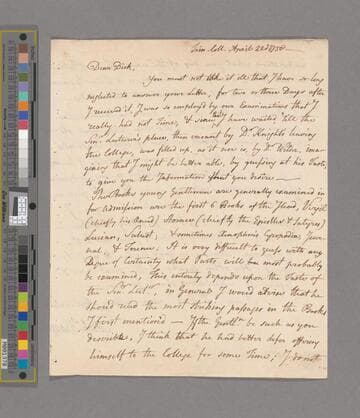 Trin. Coll. April 22d 1758
Dear Dick,
You must not take it ill that I have so long
neglected to answer your Letter, for two or three Days after
I received it, I was so employ'd by our Examinations that I
really had not Time, & since I have waited till the
Senr. Lecturer's place, then vacant by Dr. Knight's leaving
the College, was filled up, as it now is, by Dr. Wilson, ima-
gining that I might be better able, by guessing at his Taste,
to give you the Information that you desire.
The Books young Gentlemen are generally examined in
for admission were the first 6 Books of the Iliad, Virgil
(chiefly his Æneid) Horace (chiefly the Epistles & Satyres)
Lucian, Sallust, & sometimes Xenophon's Cyropædia, Juve-
nal, & Terence; It is very difficult to guess with any
Degree of Certainty what Parts will be most probably
be examined, This intirely depends upon the Taste of
the Senr. Lectr. in General I would advise that he
should read the most striking passages in the Books
I first mentioned — If the Gentln. be such as you
describe, I think that he had better defer offering
himself to the College for some Time; I do not